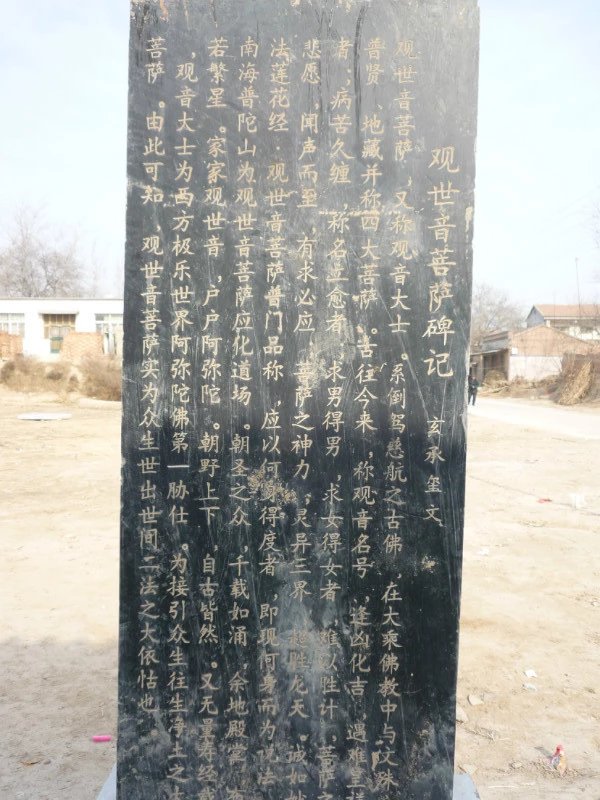 观世音菩萨碑记 玄承玺文
观世音菩萨，又称观音大士。系倒驾慈航之古佛，在大乘佛教中与文殊
普贤、地藏并称四大菩萨。古往今来，称观音名号，逢凶化吉，遇难呈祥
者，病苦久缠，称名立愈者，求男得男，求女得女者，难以胜计，菩萨之
悲愿，闻声而至，有求必应，菩萨之神力，灵异三界，超胜龙天。诚如妙
法莲花经·观世音菩萨普门品称，应以何身得度者，即现何身而为说法
南海普陀山为观世音菩萨应化道场。朝圣之众，千载如涌，余地殿堂
若繁星。家家观世音，户户阿弥陀。朝野上下，自古皆然。又无量寿经
，观音大士为西方极乐世界阿弥陀佛第一胁仕。为接引众生往生净土之
菩萨。由此可知，观世音菩萨实为众生世出世间二法之大依怙也